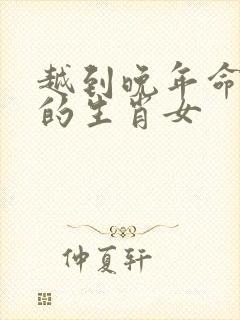 越到晚年命
的生肖女
仲夏轩